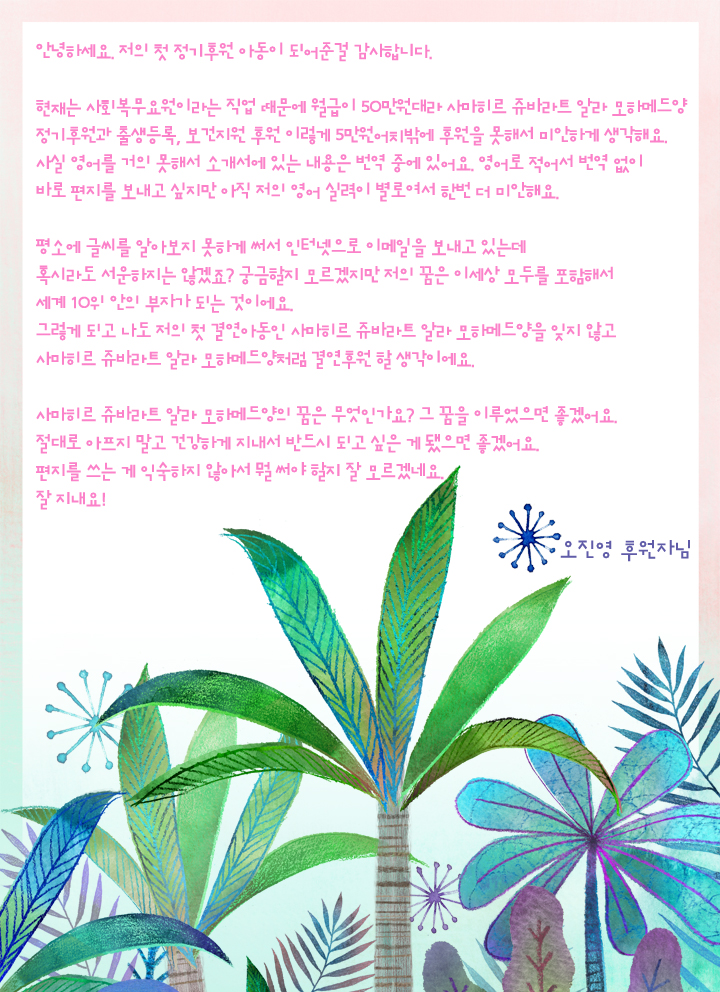 안녕하세요. 저의 첫 정기후원 아동이 되어준걸 감사합니다.
현재는 사회복무요원이라는 직업 때문에 월급이 50만원대라 사마히르 쥬바라트 알라 모하메드양
정기후원과 출생등록, 보건지원 후원 이렇게 5만원어치밖에 후원을 못해서 미안하게 생각해요.
사실 영어를 거의 못해서 소개서에 있는 내용은 번역 중에 있어요. 영어로 적어서 번역 없이
바로 편지를 보내고 싶지만 아직 저의 영어 실력이 별로여서 한번 더 미안해요.
평소에 글씨를 알아보지 못하게 써서 인터넷으로 이메일을 보내고 있는데
혹시라도 서운하지는 않겠죠? 궁금할지 모르겠지만 저의 꿈은 이세상 모두를 포함해서
세계 10위 안의 부자가 되는 것이에요.
그렇게 되고 나도 저의 첫 결연아동인 사마히르 쥬바라트 알라 모하메드양을 잊지 않고
사마히르 쥬바라트 알라 모하메드양처럼 결연후원 할 생각이에요.
사마히르 쥬바라트 알라 모하메드양의 꿈은 무엇인가요? 그 꿈을 이루었으면 좋겠어요.
절대로 아프지 말고 건강하게 지내서 반드시 되고 싶은 게 됐으면 좋겠어요.
편지를 쓰는 게 익숙하지 않아서 뭘 써야 할지 잘 모르겠네요.
잘 지내요!
오진영 후원자님